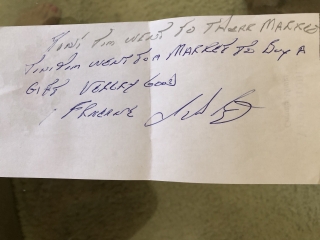 TINI TIM WENT TO THERE MARKET
TINI TIM WENT TOM MARKET TO BUY A
GIFT VERLEY GOOD